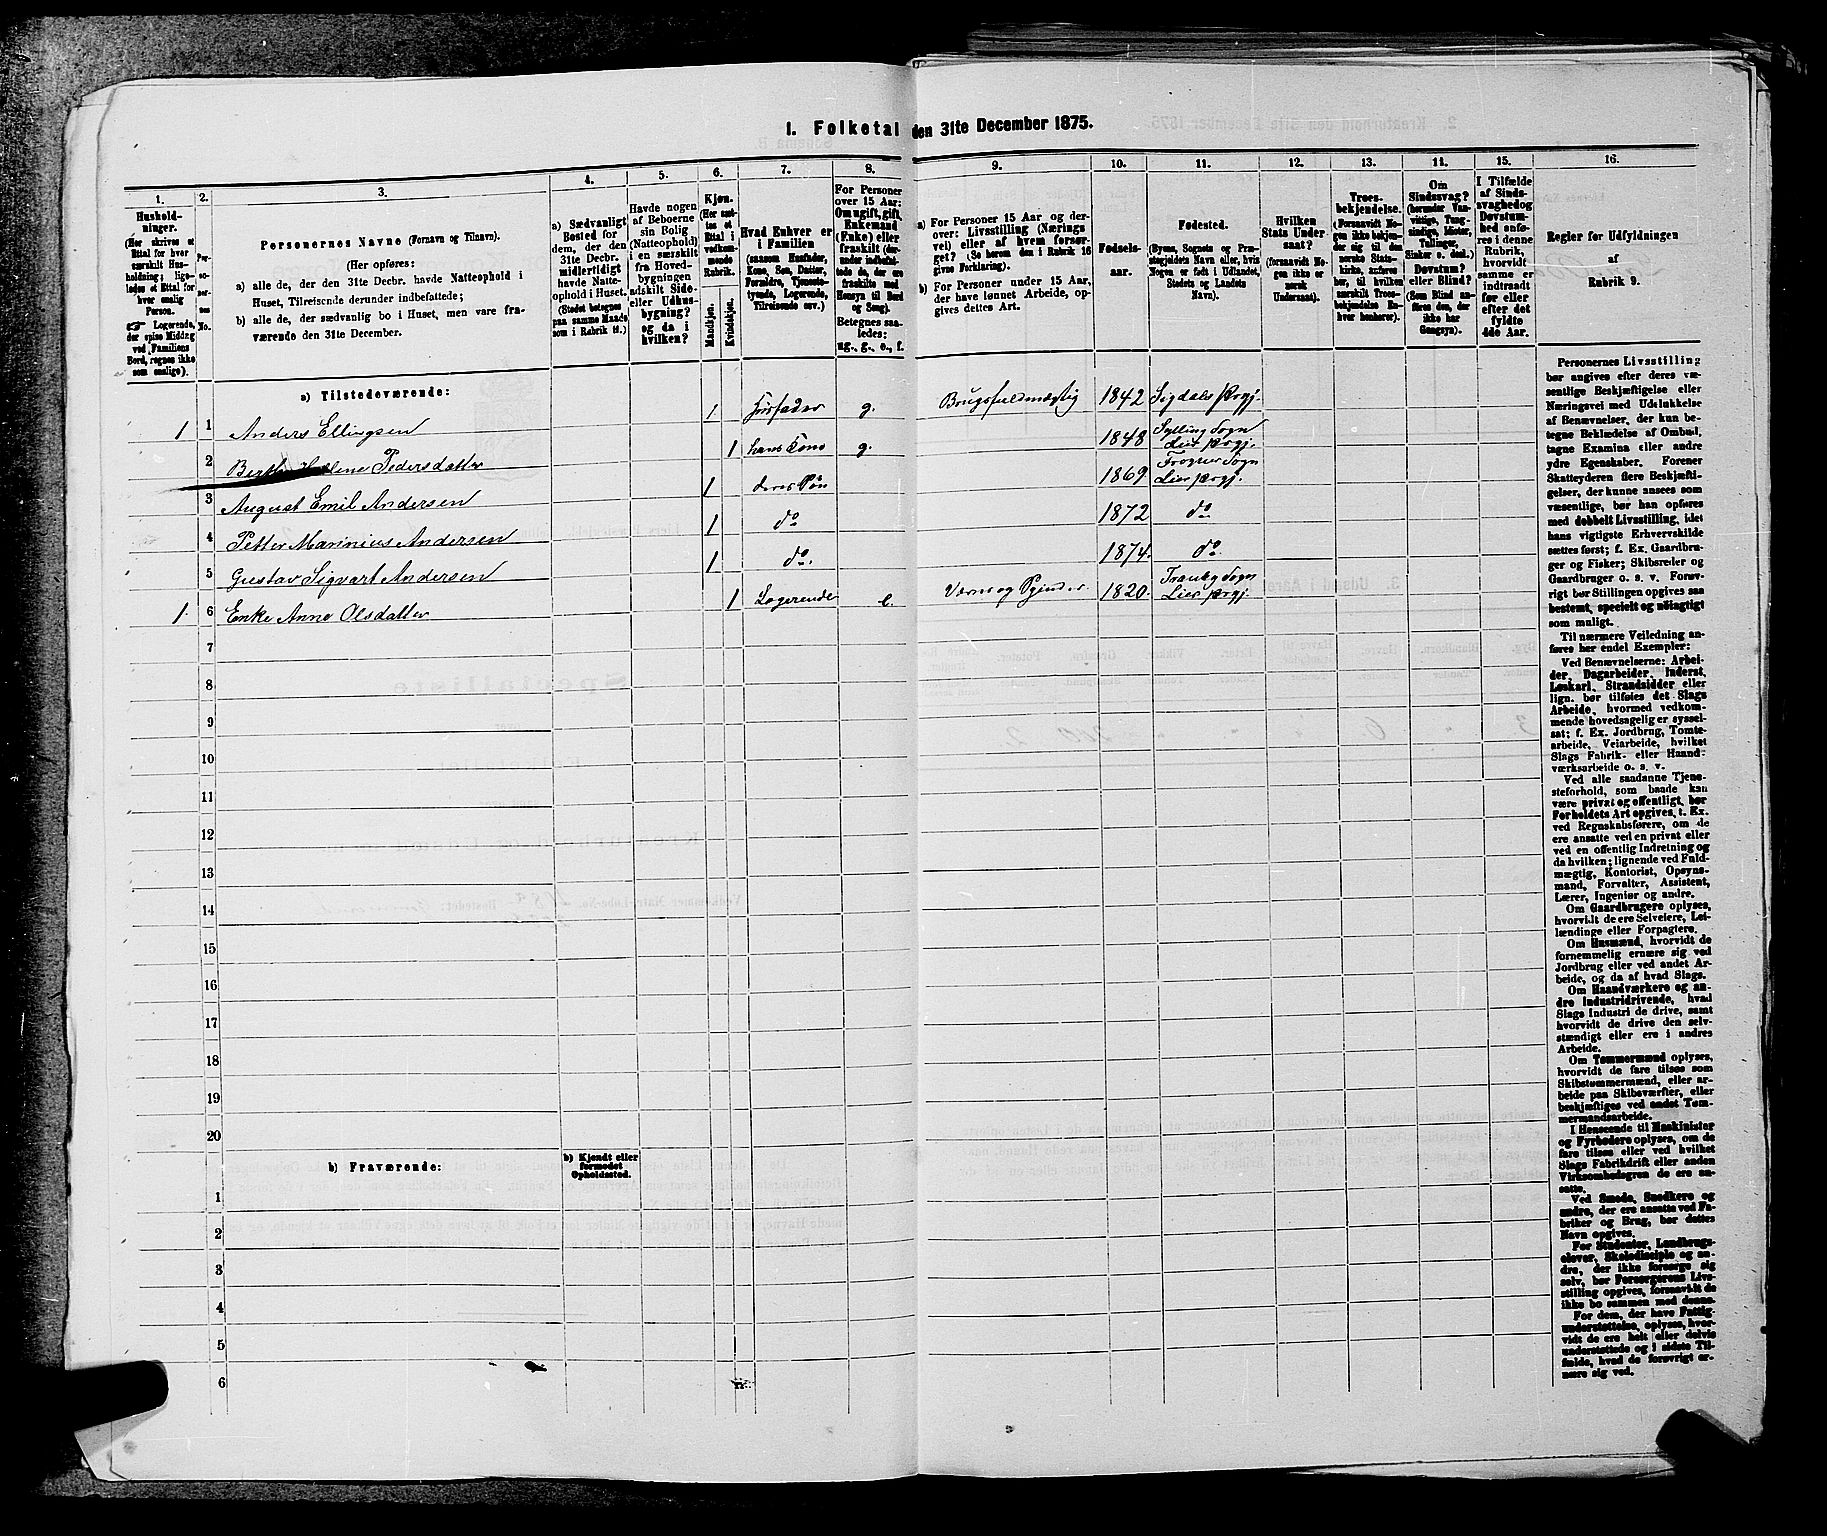 I. Folketal den 31te December 1875.
1. 2. 3. 4. 5. 6. 7. 8. 9. 10. 11. 12. 13. 14. 15. 16.
Hushold-
ninger.
(Her skrives et
Ettal for hver
særskilt Hus-
holdning; lige-
ledes et Ettal for
hver enslig
Person.
☞ Logerende,
der spise Middag
ved Familiens
Bord, regnes ikke
som enslige).
Per-
so-
ner-
nes
No.
Personernes Navne (Fornavn og Tilnavn).
(Her opføres:
a) alle de, der den 31te Decbr. havde Natteophold i
Huset, Tilreisende derunder indbefattede;
b) alle de, der sædvanlig bo i Huset, men vare fra-
værende den 31te December.
a) Sædvanligt
Bosted for
dem, der den
31te Decbr.
midlertidigt
havde Natte-
ophold i Huset.
(Stedet betegnes
paa samme Maade
som i Rubrik 11.)
Havde nogen
af Beboerne
sin Bolig
(Natteophold)
i en særskilt
fra Hoved-
bygningen
adskilt Side-
eller Udhus-
bygning?
og da i
hvilken?
Kjøn.
(Her sæt-
tes et
Ettal i
vedkom-
mende
Rubrik.
Mandkjøn.
Kvindekjøn.
Hvad Enhver er
i Familien
(saasom Husfader,
Kone, Søn, Datter,
Forældre, Tjeneste-
tyende, Logerende,
Tilreisende osv.)
For Personer
over 15 Aar:
Om ugift, gift,
Enkemand
(Enke) eller
fraskilt (der-
under indbefat-
tede de, der ere
fraskilte med
Hensyn til Bord
og Seng).
Betegnes saa-
ledes:
ug., g., e., f.
a) For Personer 15 Aar og der-
over: Livsstilling (Nærings
vei) eller af hvem forsør-
get? (Se herom den i Rubrik 16
givne Forklaring).
b) For Personer under 15 Aar,
der have lønnet Arbeide, op-
gives dettes Art.
Fødsels-
aar.
Fødested.
(Byens, Sognets og Præ-
stegjeldets Navn eller, hvis
Nogen er født i Udlandet,
Stedets og Landets
Navn).
Hvilken
Stats Under
saat?
(forsaavidt No-
gen ikke er
norsk
Undersaat).
Troes-
bekjendelse.
(Forsaavidt No-
gen ikke bekjen-
der sig til den
norske Stats-
kirke, anføres
her, til hvilken
særskilt Troes-
bekjendelse En-
hver henhører).
Om
Sindssvag?
(herunder Van-
vittige, Tung-
sindige, Idioter,
Tullinger,
Sinker o. desl.)
Døvstum?
eller Blind?
(Som Blind an-
føres den, der
ikke har
Gangsyn).
I Tilfælde
af Sinds-
svaghed og
Døvstum-
hed anfø-
res i denne
Rubrik,
hvorvidt
samme er
indtraadt
før eller
efter det
fyldte
4de Aar.
Regler for Udfyldningen
af
Rubrik 9.
a) Tilstedeværende:
1 1 Anders Ellingsen 1 Husfader g. Brugsfuldmægtig 1842 Sigdals Prgj.
2 Berthe Helene Pedersdatter 1 hans Kone g. 1848 Sylling Sogn
Lier Prgj.
3 August Emil Andersen 1 deres Søn 1869 Frogner Sogn
Lier Prgj.
4 Petter Marinius Andersen 1 do 1872 do
5 Gustav Sigvart Andersen 1 do. 1874. do.
1. 6 Enke Anne Olsdatter 1 Logerende e. 1820. Tranby Sogn
Lier Prgj.
7
8
9
10
11
12
13
14
15
16
17
18
19
20
b) Fraværende:
b) Kjendt eller
formodet
Opholdssted.
1
2
3
4
5
6
Personernes Livsstilling
bør angives efter deres væ-
sentlige Beskjæftigelse eller
Næringsvei med Udelukkelse
af Benævnelser, der kun be-
tegne Beklædelse af Ombud,
tagne Examina eller andre
ydre Egenskaber. Forener
Skatteyderen flere Beskjæfti-
gelser, der kunne ansees som
væsentlige, bør han opføres
med dobbelt Livsstilling, idet
hans vigtigste Erhvervskilde
sættes først; f. Ex. Gaardbru-
ger og Fisker; Skibsreder og
Gaardbruger o. s. v. Forøv-
rigt bør Stillingen opgives saa
bestemt, specielt og nøiagtigt
som muligt.
Til nærmere Veiledning an-
føres her endel Exempler:
Ved Benævnelserne: Arbei-
der, Dagarbeider, Inderst,
Løskarl, Strandsidder eller
lign. bør tilføies det Slags
Arbeide, hvormed vedkom-
mende hovedsagelig er syssel-
sat; f. Ex. Jordbrug, Tomte-
arbeide, Veiarbeide, hvilket
Slags Fabrik- eller Haand-
værksarbeide o. s. v.
Ved alle saadanne Tjene-
steforhold, som baade kan
være privat og offentligt, bør
Forholdets Art opgives, t. Ex.
ved Regnskabsførere, om de
ere ansatte ved en privat eller
ved en offentlig Indretning og
da hvilken; lignende ved Fuld-
mægtig, Kontorist, Opsyns-
mand, Forvalter, Assistent,
Lærer, Ingeniør og andre.
Om Gaardbrugere oplyses,
hvorvidt de ere Selveiere, Lei-
lændinge eller Forpagtere.
Om Husmænd, hvorvidt de
fornemmelig ernære sig ved
Jordbrug eller ved andet Ar-
beide, og da af hvad Slags.
Om Haandværkere og an-
dre Industridrivende, hvad
Slags Industri de drive, samt
hvorvidt de drive den selv-
stændigt eller ere i andres
Arbeide.
Om Tømmermænd oplyses,
hvorvidt de fare tilsøs som
Skibstømmermænd, eller ar-
beide paa Skibsværfter, eller
beskjæftiges ved andet Tøm-
mermandsarbeide.
I Henseende til Maskinister
og Fyrbødere oplyses, om de
fare tilsøs eller ved hvilket
Slags Fabrikdrift eller anden
Virksomhedsgren de ere an-
satte.
Ved Smede, Snedkere og
andre, der ere ansatte ved Fa-
briker og Brug, bør dettes
Navn opgives.
For Studenter, Landbrugs-
elever, Skoledisciple og an-
dre, der ikke forsørge sig
selv, bør Forsørgerens Livs-
stilling opgives, forsaavidt de
ikke bo sammen med denne.
For dem, der have Fattig-
understøttelse, oplyses, hvor-
vidt de ere helt eller delvis
understøttede og i sidste Til-
fælde, hvad de forøvrigt er-
nære sig ved.